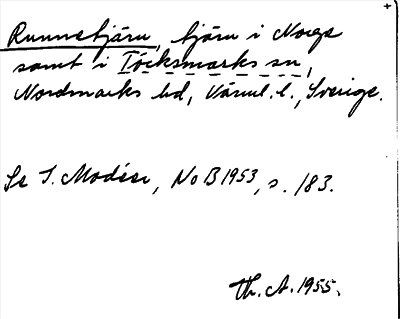 Runnetjärn, tjärn i Norge
samt i Töcksmarks sn,
Nordmarks hd, Värml. l., Sverige.
Se I. Modéer, NoB 1953, s. 183.
Th. A. 1955.